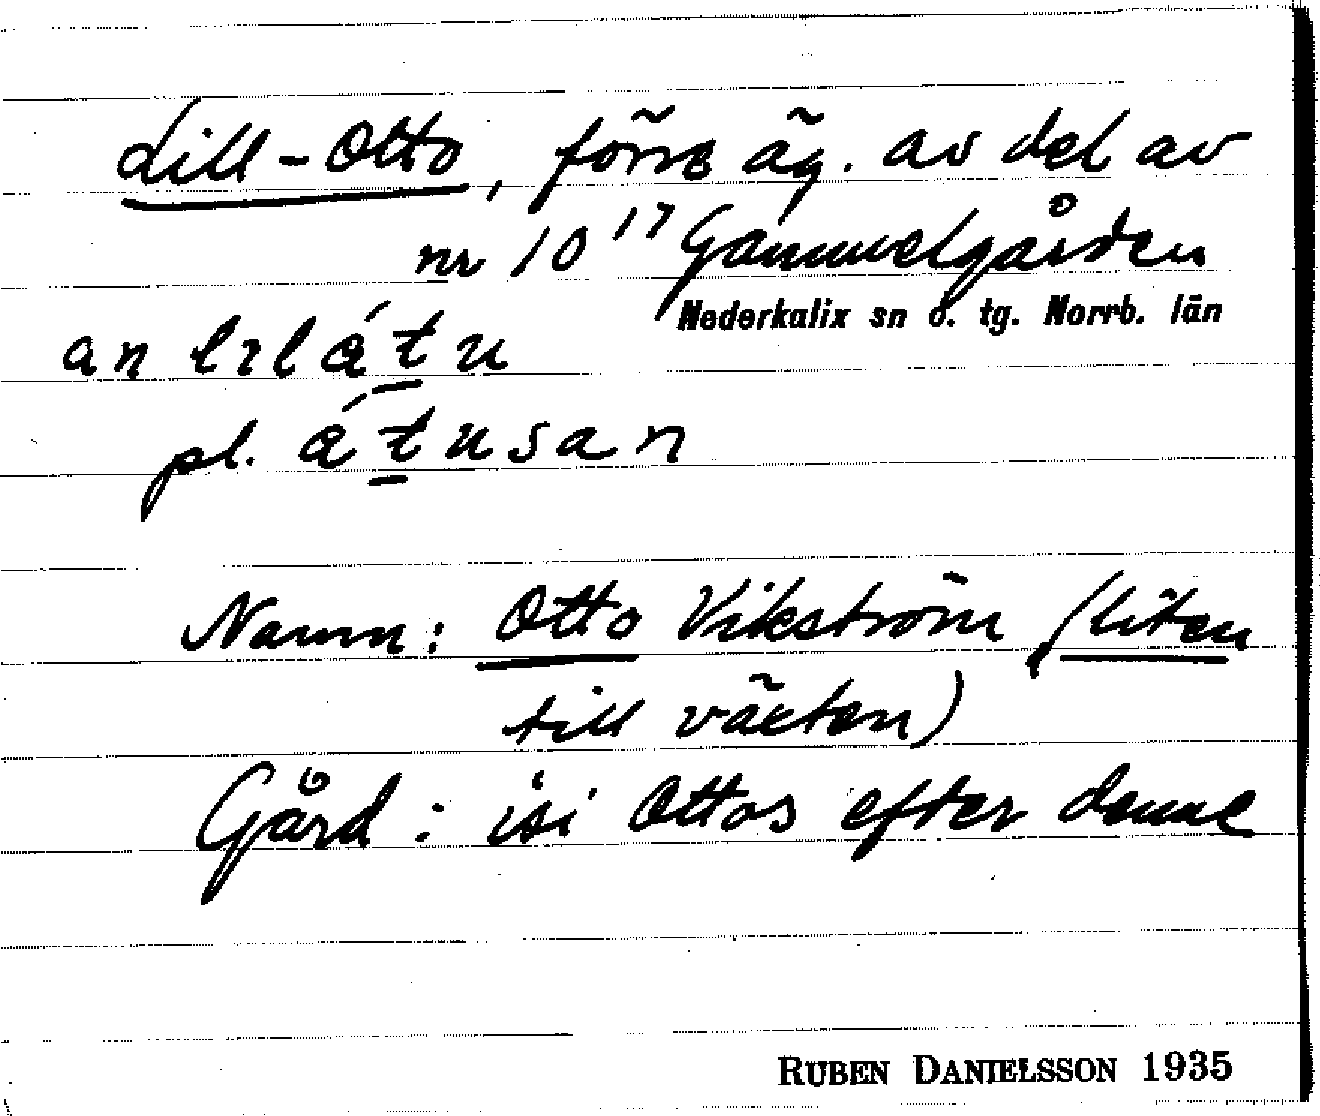 Lill-Otto, förre äg. av del av
nr 10¹⁷ Gammelgården
Nederkalix sn o. tg. Norrb. län
an lɩlátu
pl. átusan
Namn: Otto Vikström (liten
till växten)
Gård: isi Ottos efter denne
RUBEN DANIELSSON 1935